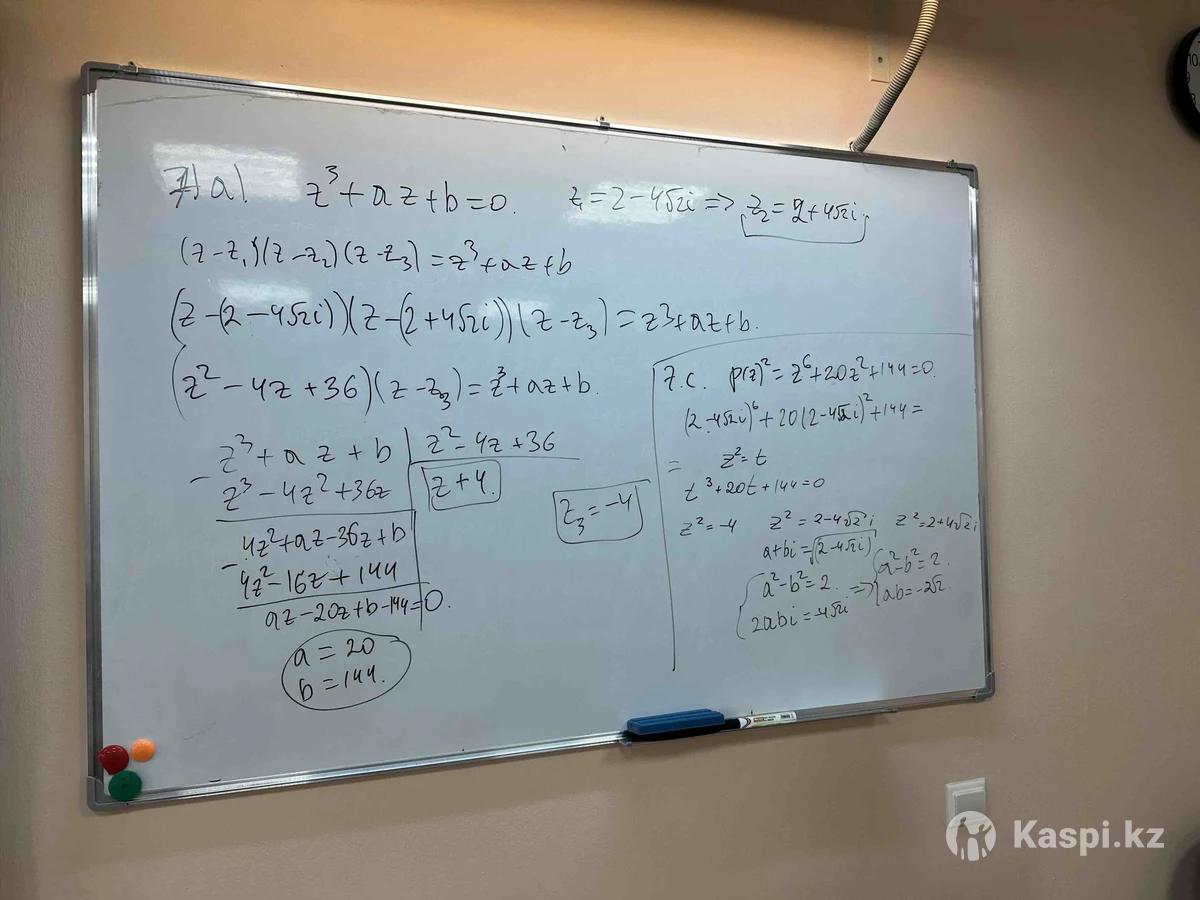 7) a) z³ + az + b = 0. z₁ = 2 - 4√2i => z₂ = 2 + 4√2i
(z - z₁)(z - z₂)(z - z₃) = z³ + az + b
(z - (2 - 4√2i))(z - (2 + 4√2i))(z - z₃) = z³ + az + b.
(z² - 4z + 36)(z - z₃) = z³ + az + b.
z³ + az + b | z² - 4z + 36
- z³ - 4z² + 36z
z + 4.
z₃ = -4
4z² + az - 36z + b
- 4z² - 16z + 144
az - 20z + b - 144 = 0.
a = 20
b = 144.
7.c. p(z)² = z⁶ + 20z² + 144 = 0.
(2 - 4√2i)⁶ + 20(2 - 4√2i)² + 144 =
= z² = t
t³ + 20t + 144 = 0
z² = -4 z² = 2 - 4√2i z² = 2 + 4√2i
a + bi = √(2 - 4√2i)
{ a² - b² = 2. => { a² - b² = 2.
2abi = -4√2i ab = -2√2.
10
Kaspi.kz